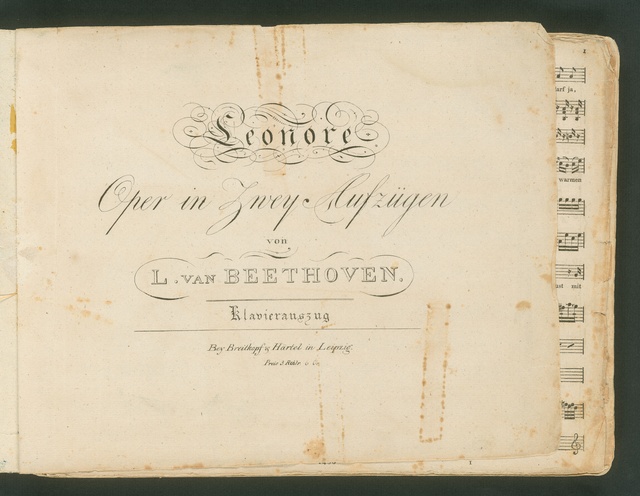 Leonore
Oper in Zwey Aufzügen
von
L. VAN BEETHOVEN.
Klavierauszug
Bey Breitkopf & Härtel in Leipzig.
1
arf ja,
warmen
ust mit
1